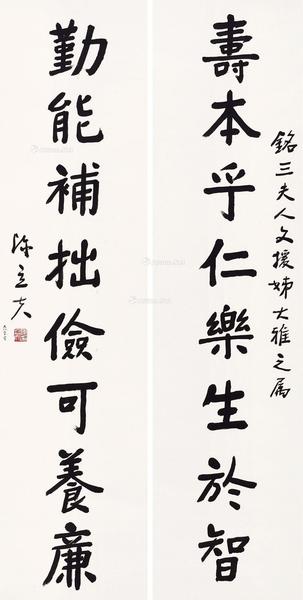 銘三夫人文援姊大雅之屬
壽本乎仁樂生於智
勤能補拙儉可養廉
陳立夫